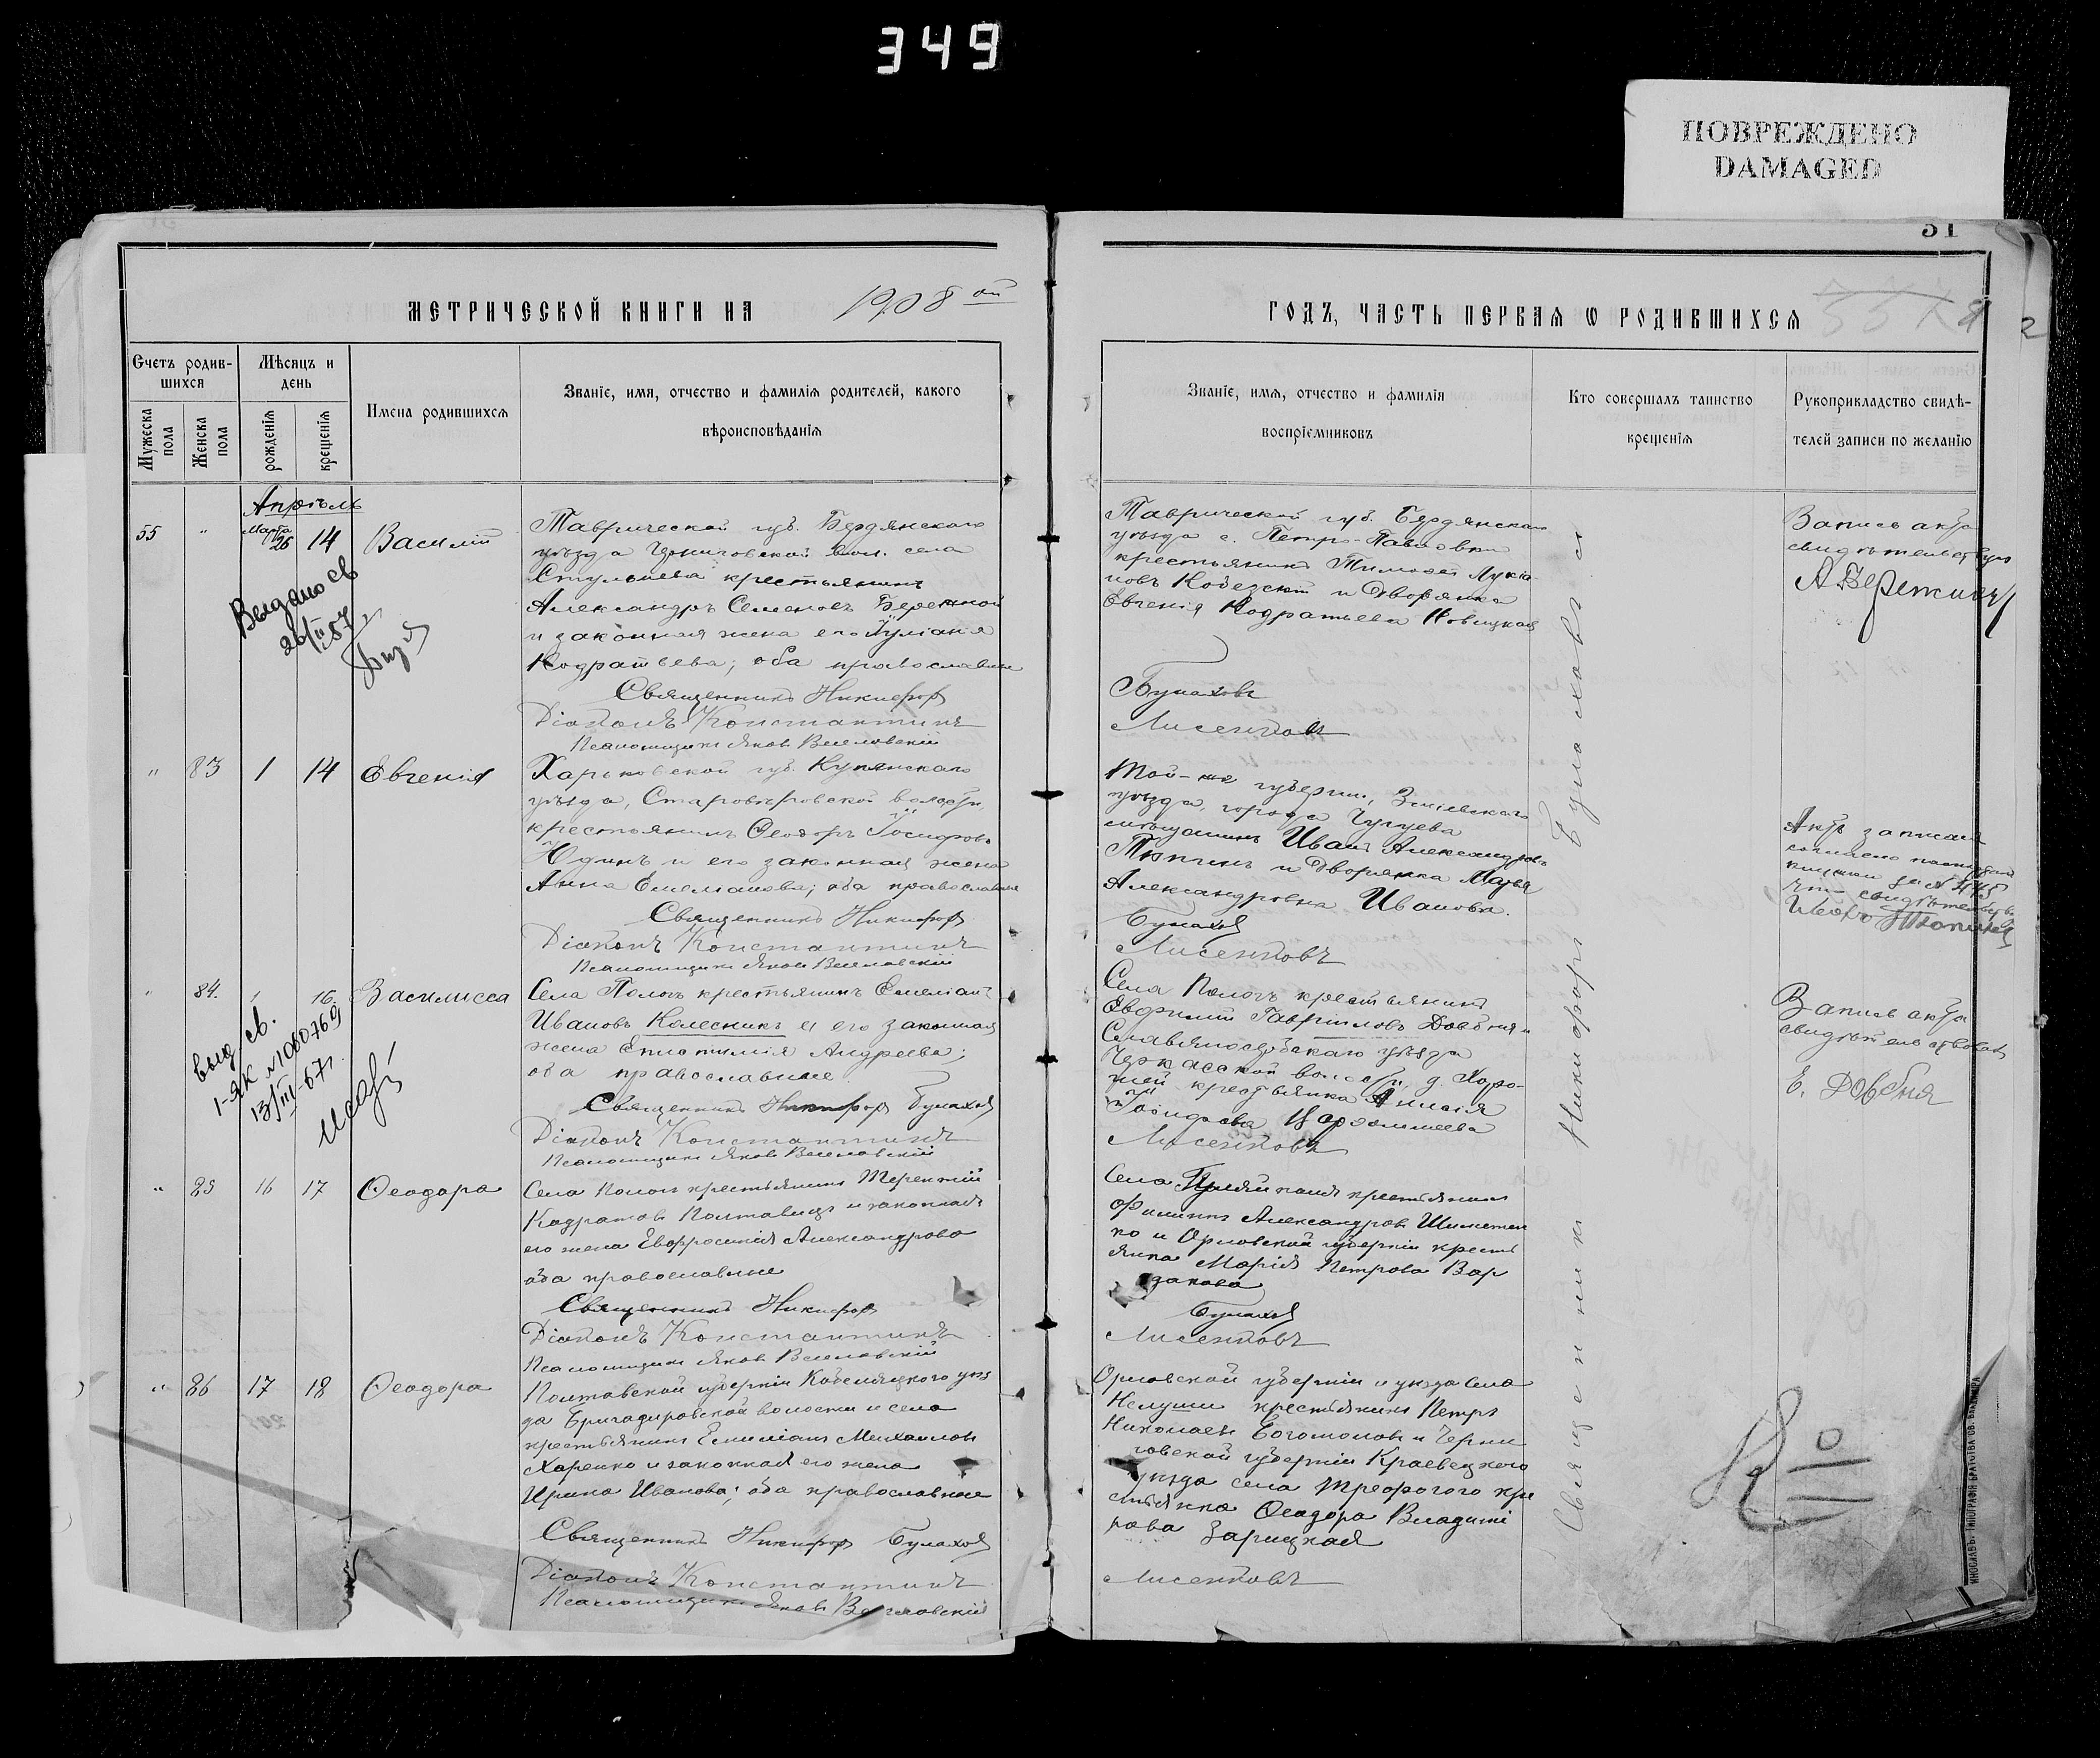 349
ПОВРЕЖДЕНО
DAMAGED
51
МЕТРИЧЕСКОЙ КНИГИ НА 1908 ой
ГОДЪ, ЧАСТЬ ПЕРВАЯ Ѡ РОДИВШИХСЯ
Счетъ родив-
шихся
Мужеска
пола
Женска
пола
Мѣсяцъ и
день
рожденія
крещенія
Имена родившихся
Званіе, имя, отчество и фамилія родителей, какого
вѣроисповѣданія
Званіе, имя, отчество и фамилія
воспріемниковъ
Кто совершалъ таинство
крещенія
Рукоприкладство свидѣ-
телей записи по желанію
Апрѣль
55 " Марта 26 14 Василій
Таврической губ. Бердянскаго
уѣзда Черниговской вол. села
крестьянинъ
Александръ Семеновъ Бережной
и законная жена его Іуліанія
Кодратьева; оба православные
Священникъ Никифоръ
Діаконъ Константинъ
Псаломщикъ Яковъ Веселовскій
Таврической губ. Бердянскаго
уѣзда с. Петро-Павловки
крестьянинъ Тимоѳей Лукіа-
новъ и Дворянка
Евгенія Кодратьева Новицкая
Булаховъ
Лисенковъ
Запись акта
свидѣтельствую
А Бережной
Выдано св
" 83 1 14 Евгенія
Харьковской губ. Купянскаго
уѣзда, Старовѣровской волости
крестьянинъ Ѳеодоръ Іосифовъ
Юдинъ и его законная жена
Анна Емеліанова; оба православные
Священникъ Никифоръ
Діаконъ Константинъ
Псаломщикъ Яковъ Веселовскій
Той-же губерніи, Зміевскаго
уѣзда, города Чугуева
мѣщанинъ Иванъ Александровъ
и Дворянка Марья
Александровна Иванова.
Булаховъ
Лисенковъ
Актъ записанъ
согласно
" 84. 1 16 Василисса
Села Пологъ крестьянинъ Емеліанъ
Ивановъ Колесникъ и его законная
жена Епистимія Андреева;
оба православные.
Священникъ Никифоръ Булаховъ
Діаконъ Константинъ
Псаломщикъ Яковъ Веселовскій
Села Пологъ крестьянинъ
Евфимій Гавріиловъ Довбня и
Славяносербскаго уѣзда
Черкасской волости, д. Хоро-
шей крестьянка Анисія
Іосифова
Лисенковъ
Запись акта
свидѣтельствовалъ
Е. Довбня
выд св.
1-ЯК №1060769
13/III-67г.
" 85 16 17 Ѳеодора
Села Пологъ крестьянинъ Терентій
Кодратовъ Полтавецъ и законная
его жена Евфросинія Александрова
оба православные
Священникъ Никифоръ
Діаконъ Константинъ
Псаломщикъ Яковъ Веселовскій
Села Гуляйполя крестьянинъ
Филиппъ Александровъ
ко и Орловской губерніи кресть
янка Марія Петрова Вар
дакова
Булаховъ
Лисенковъ
" 86 17 18 Ѳеодора
Полтавской губерніи Кобеляцкого уѣз
да Бригадировской волости и села
крестьянинъ Емиліанъ Михаиловъ
Харенко и законная его жена
Ирина Иванова; оба православные
Священникъ Никифоръ Булаховъ
Діаконъ Константинъ
Псаломщикъ Яковъ Веселовскій
Орловской губерніи и уѣзда села
крестьянинъ Петръ
Николаевъ Богомоловъ и Черни
говской губерніи
уѣзда села кре
стьянка Ѳеодора Владимі
рова Зарицкая
Лисенковъ
Священникъ Никифоръ Булаховъ